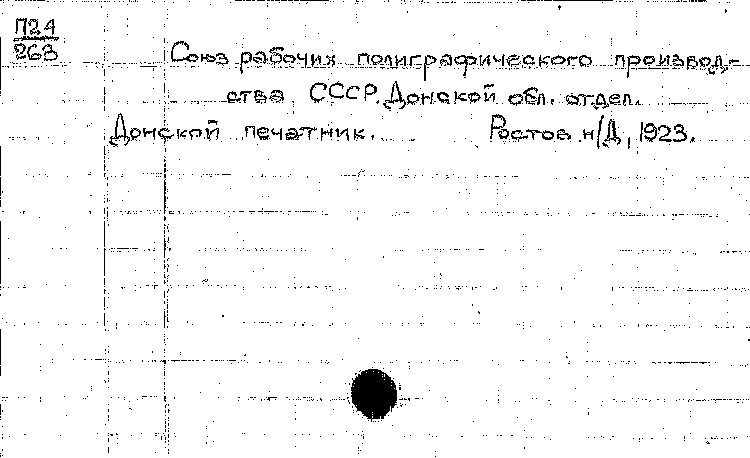 П24
263
Союз рабочих полиграфического производ-
ства СССР. Донской обл. отдел.
Донской печатник. Ростов н/Д, 1923.